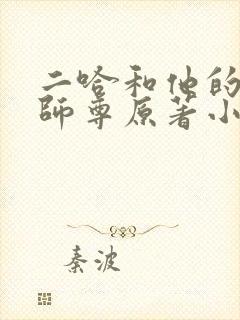 二哈和他的
師尊原著小
秦波